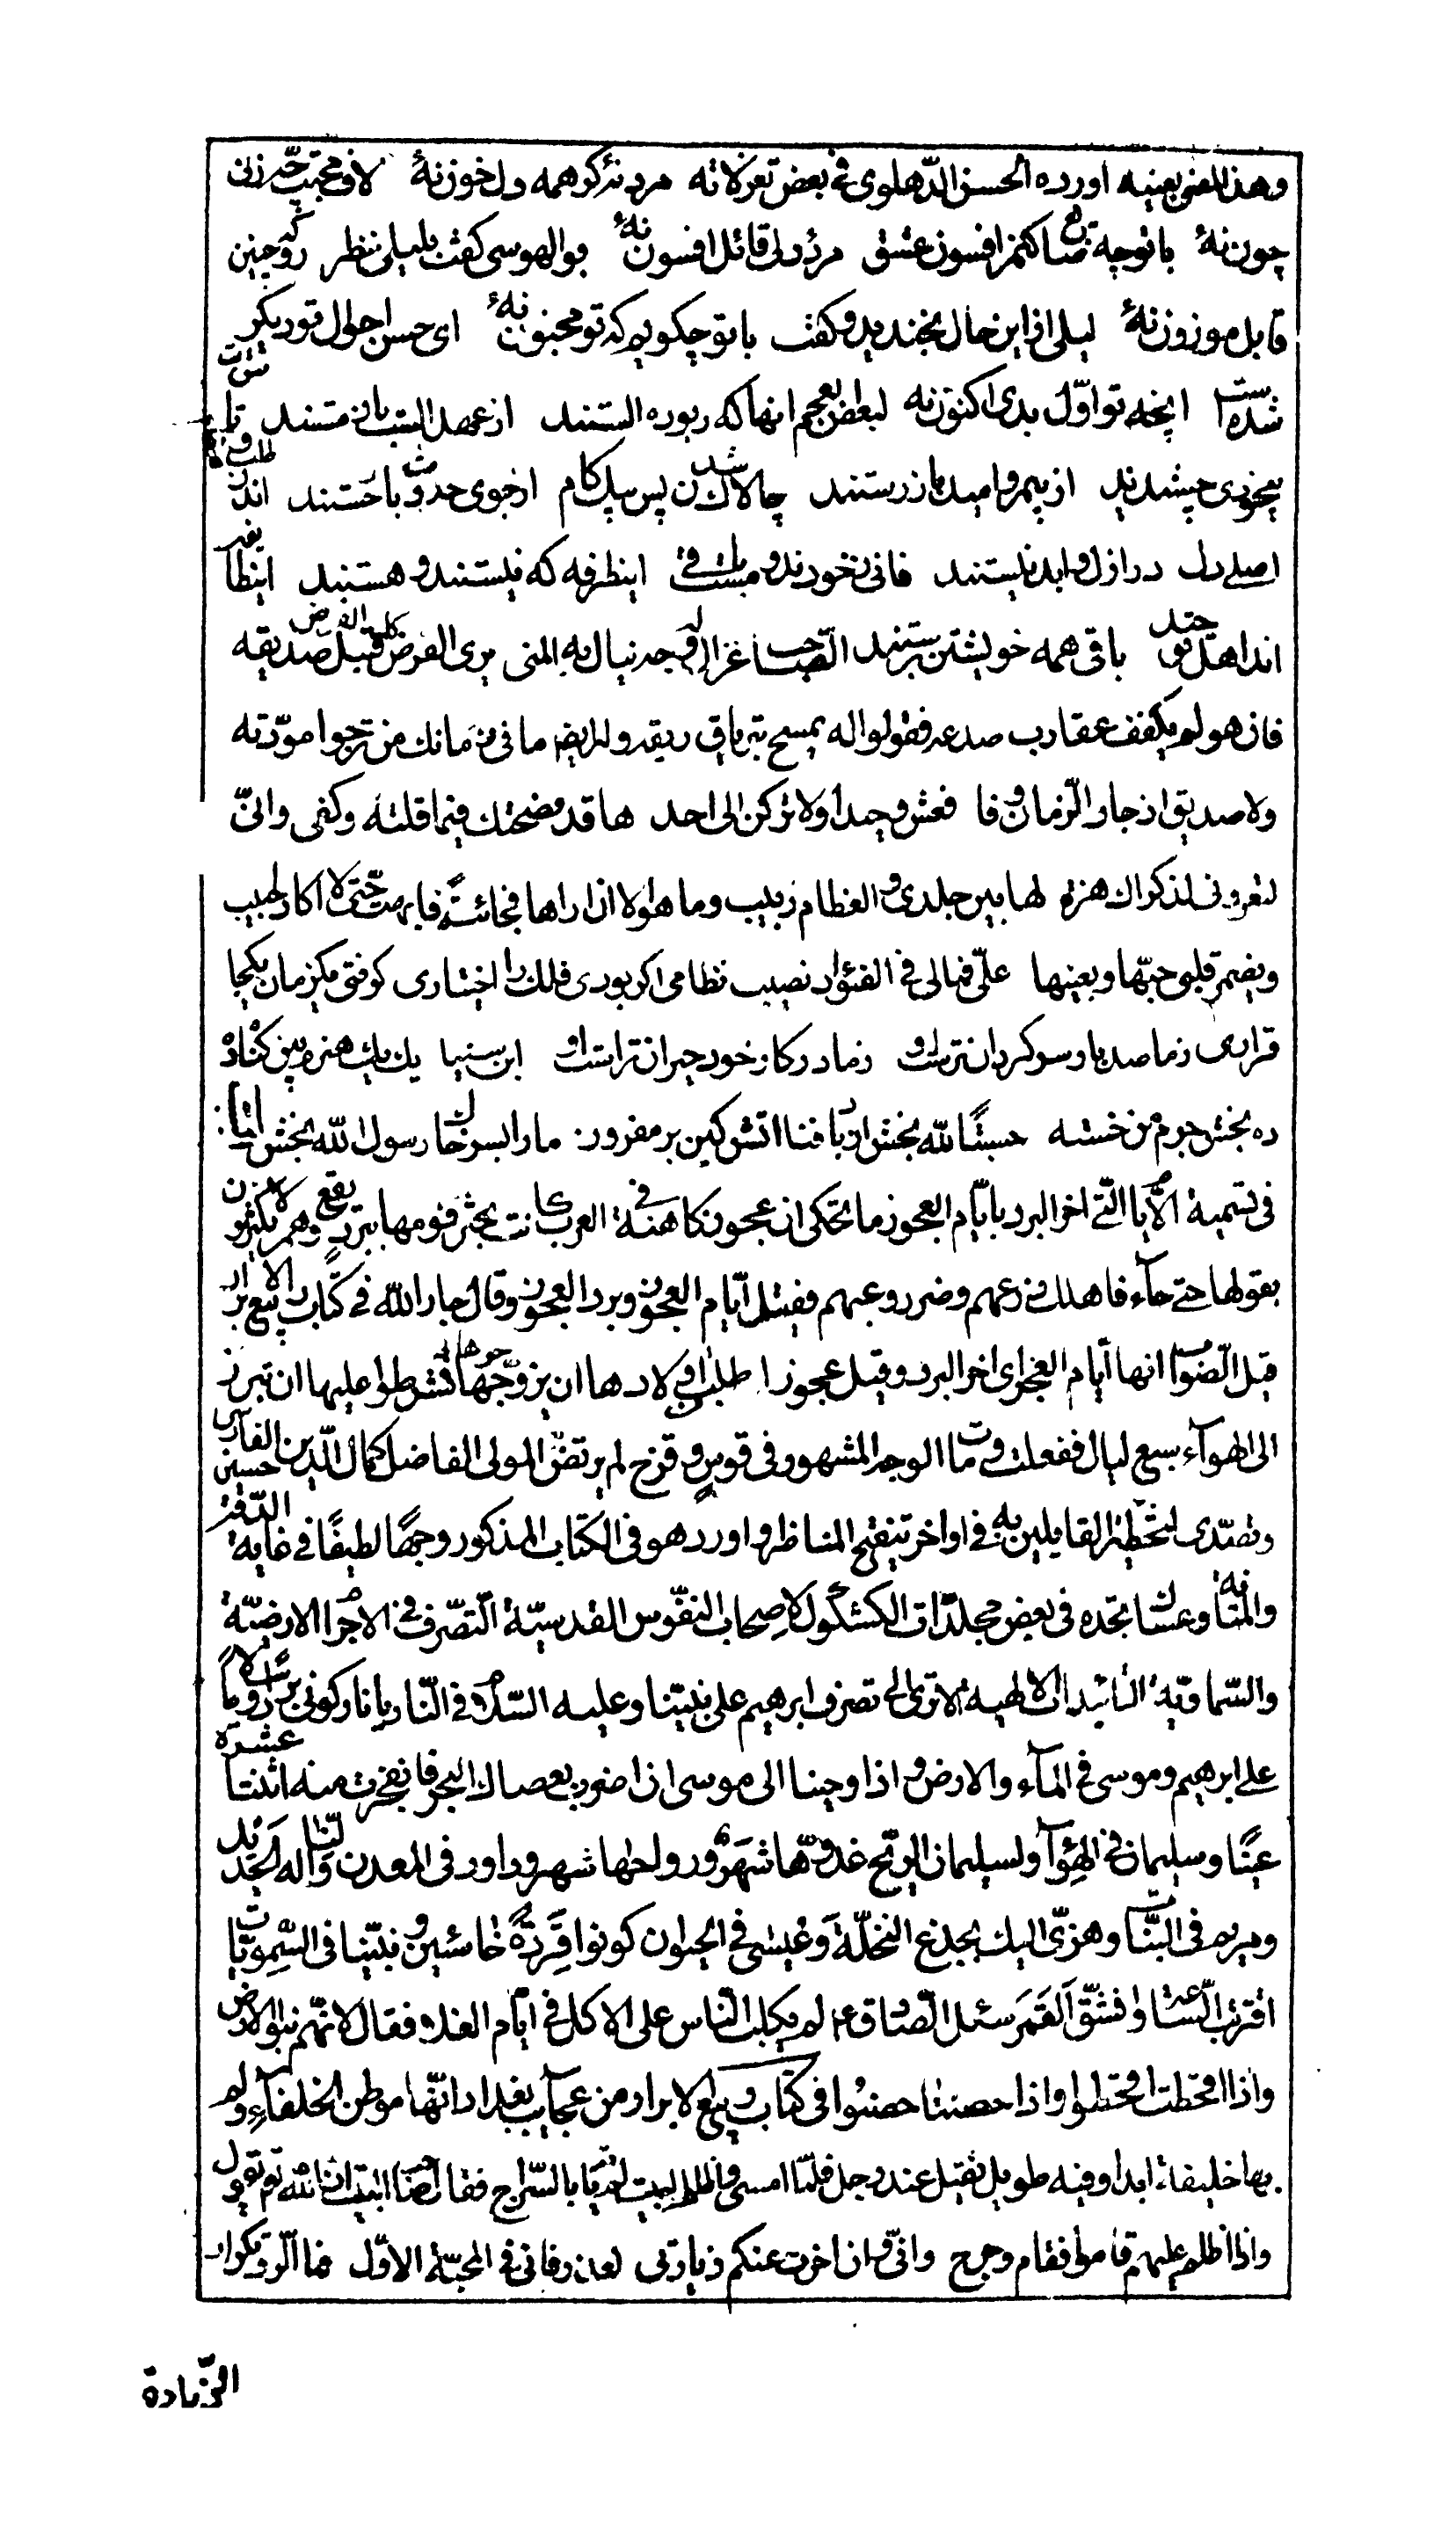 وهذا المعنی بعینه اورده الحسن الدّهلوی فی بعض تغزلاته مرد نئی کر همه دل خون نهٔ لاف محبت چه زنی
چون نهٔ با تو چه ضایع کنم افسون عشق مرده دلی قائل افسون نهٔ بوالهوسی کفت بلیلی بنظر رو که چنین
قابل موزون نهٔ لیلی از این حال بخندید و کفت با تو چکویم که تو مجنون نهٔ ای حسن احوال تو دیکر
شده است انچه تو اوّل بدی اکنون نه لبعض العجم انها که ربوده الستند از عهد الست باز مستند تا شربت
بیخودی چشیدند از بیم و امید باز رستند چالاک شدند پس بیک کام از جوی حدوث باز جستند اندر طلب
اصلی دل در ازل و ابد نبستند فانی ز خود و بدوست باقی اینطرفه که نیستند و هستند اینطایفه
اند اهل توحید باقی همه خویشتن پرستند الصّاحب غزال له وجه ینال به المنی یری الفرض کل الفرض قتل صدیقه
فان هو لم یکفف عقارب صدغه فقولوا له یسمح بتریاق ریقه ولبعضهم ما فی زمانک من ترجوا مودّته
ولا صدیق اذ جار الزّمان وفا فعش وحیدا ولا ترکن الی احد ها قد نصحتک فیما قلته وکفی وانّی
لتعرونی لذکراک هزة لها بین جلدی والعظام دبیب وما هو الا ان اراها فجائةً فابهت حتّی لا اکاد اجیب
ویضمر قلبی حبّها ویعینها علّی فمالی فی الفؤاد نصیب نظامی اکر بودی فلک را اختیاری کرفتی یکزمان یکجا
قراری ز ما صد بار سر کردان تر است او ز ما در کار خود حیران تر است او ابن سینا یک یک هنرم بین کنه ده
ده بخش جرم من خسته حسبتًا لله بخش از باد فنا اتش کین بر مفروز ما را بسر خاک رسول الله بخش
فی تسمیة الایّام الّتی اخر البرد بایّام العجوز ما یحکی ان عجوزا کاهنة فی العرب کانت تخبر قومها ببرد یقع وهم لا یکترثون
بقولها حتی جآء فاهلک زرعهم وضروعهم فقیل ایّام العجوز وبرد العجوز وقال جار الله فی کتاب ربیع الابرار
قیل الصّواب انها ایّام العجز ای اخر البرد وقیل عجوزا طلبت اولادها ان یزوّجوها فشرطوا علیها ان تبرز
الی الهوآء سبع لیال ففعلت وماتت الوجه المشهور فی قوس وقزح لم یرتضه المولی الفاضل کمال الدّین حسین الفارسی
وتصدّی لتخطئة القایلین به فی اواخر تنقیح المناظر واورد هو فی الکتاب المذکور وجهًا لطیفًا فی غایة الدّقة
والمتانة وعساک تجده فی بعض مجلدّات الکشکول لاصحاب النفوس القدسیّة التّصرف فی الاجرام الارضیّة
والسّماویّة بالتائیدات الالهیة الا تری الی تصرف ابرهیم علی نبیّنا وعلیه السّلام فی النّار یا نار کونی بردًا وسلامًا
علی ابرهیم وموسی فی المآء والارض واذ اوحینا الی موسی ان اضرب بعصاک الحجر فانفجرت منه اثنتا عشرة
عینًا وسلیمان فی الهوآء ولسلیمان الریّح غدوّها شهرٌ ورواحها شهر وداود فی المعدن والنّا له الحدید
ومریم فی النّبات وهزّی الیک بجذع النخلة وعیسی فی الحیوان کونوا قردة خاسئین ونبیّنا فی السّمویّات
اقتربت السّاعة وانشقّ القمر سئل الصّادق ع لم یکلب النّاس علی الاکل فی ایّام الغلاء فقال لانّهم بنوا الارض
واذا قحطت قحطوا واذا خصبت اخصبوا فی کتاب ربیع الابرار من عجایب بغداد انّها موطن الخلفآء ولم
بها خلیفة ابدا وفیه طویل ثقیل عند رجل فلمّا امسی واظلم البیت لم یاته بالسّراج فقال این السراج فقال صاحب البیت ان الله تعالی یقول
واذا اظلم علیهم قاموا فقام وخرج وانّی وان اخرت عنکم زیارتی لعذر فانی فی المحبّة الاوّل فما الودّ تکرار
الزّیادة